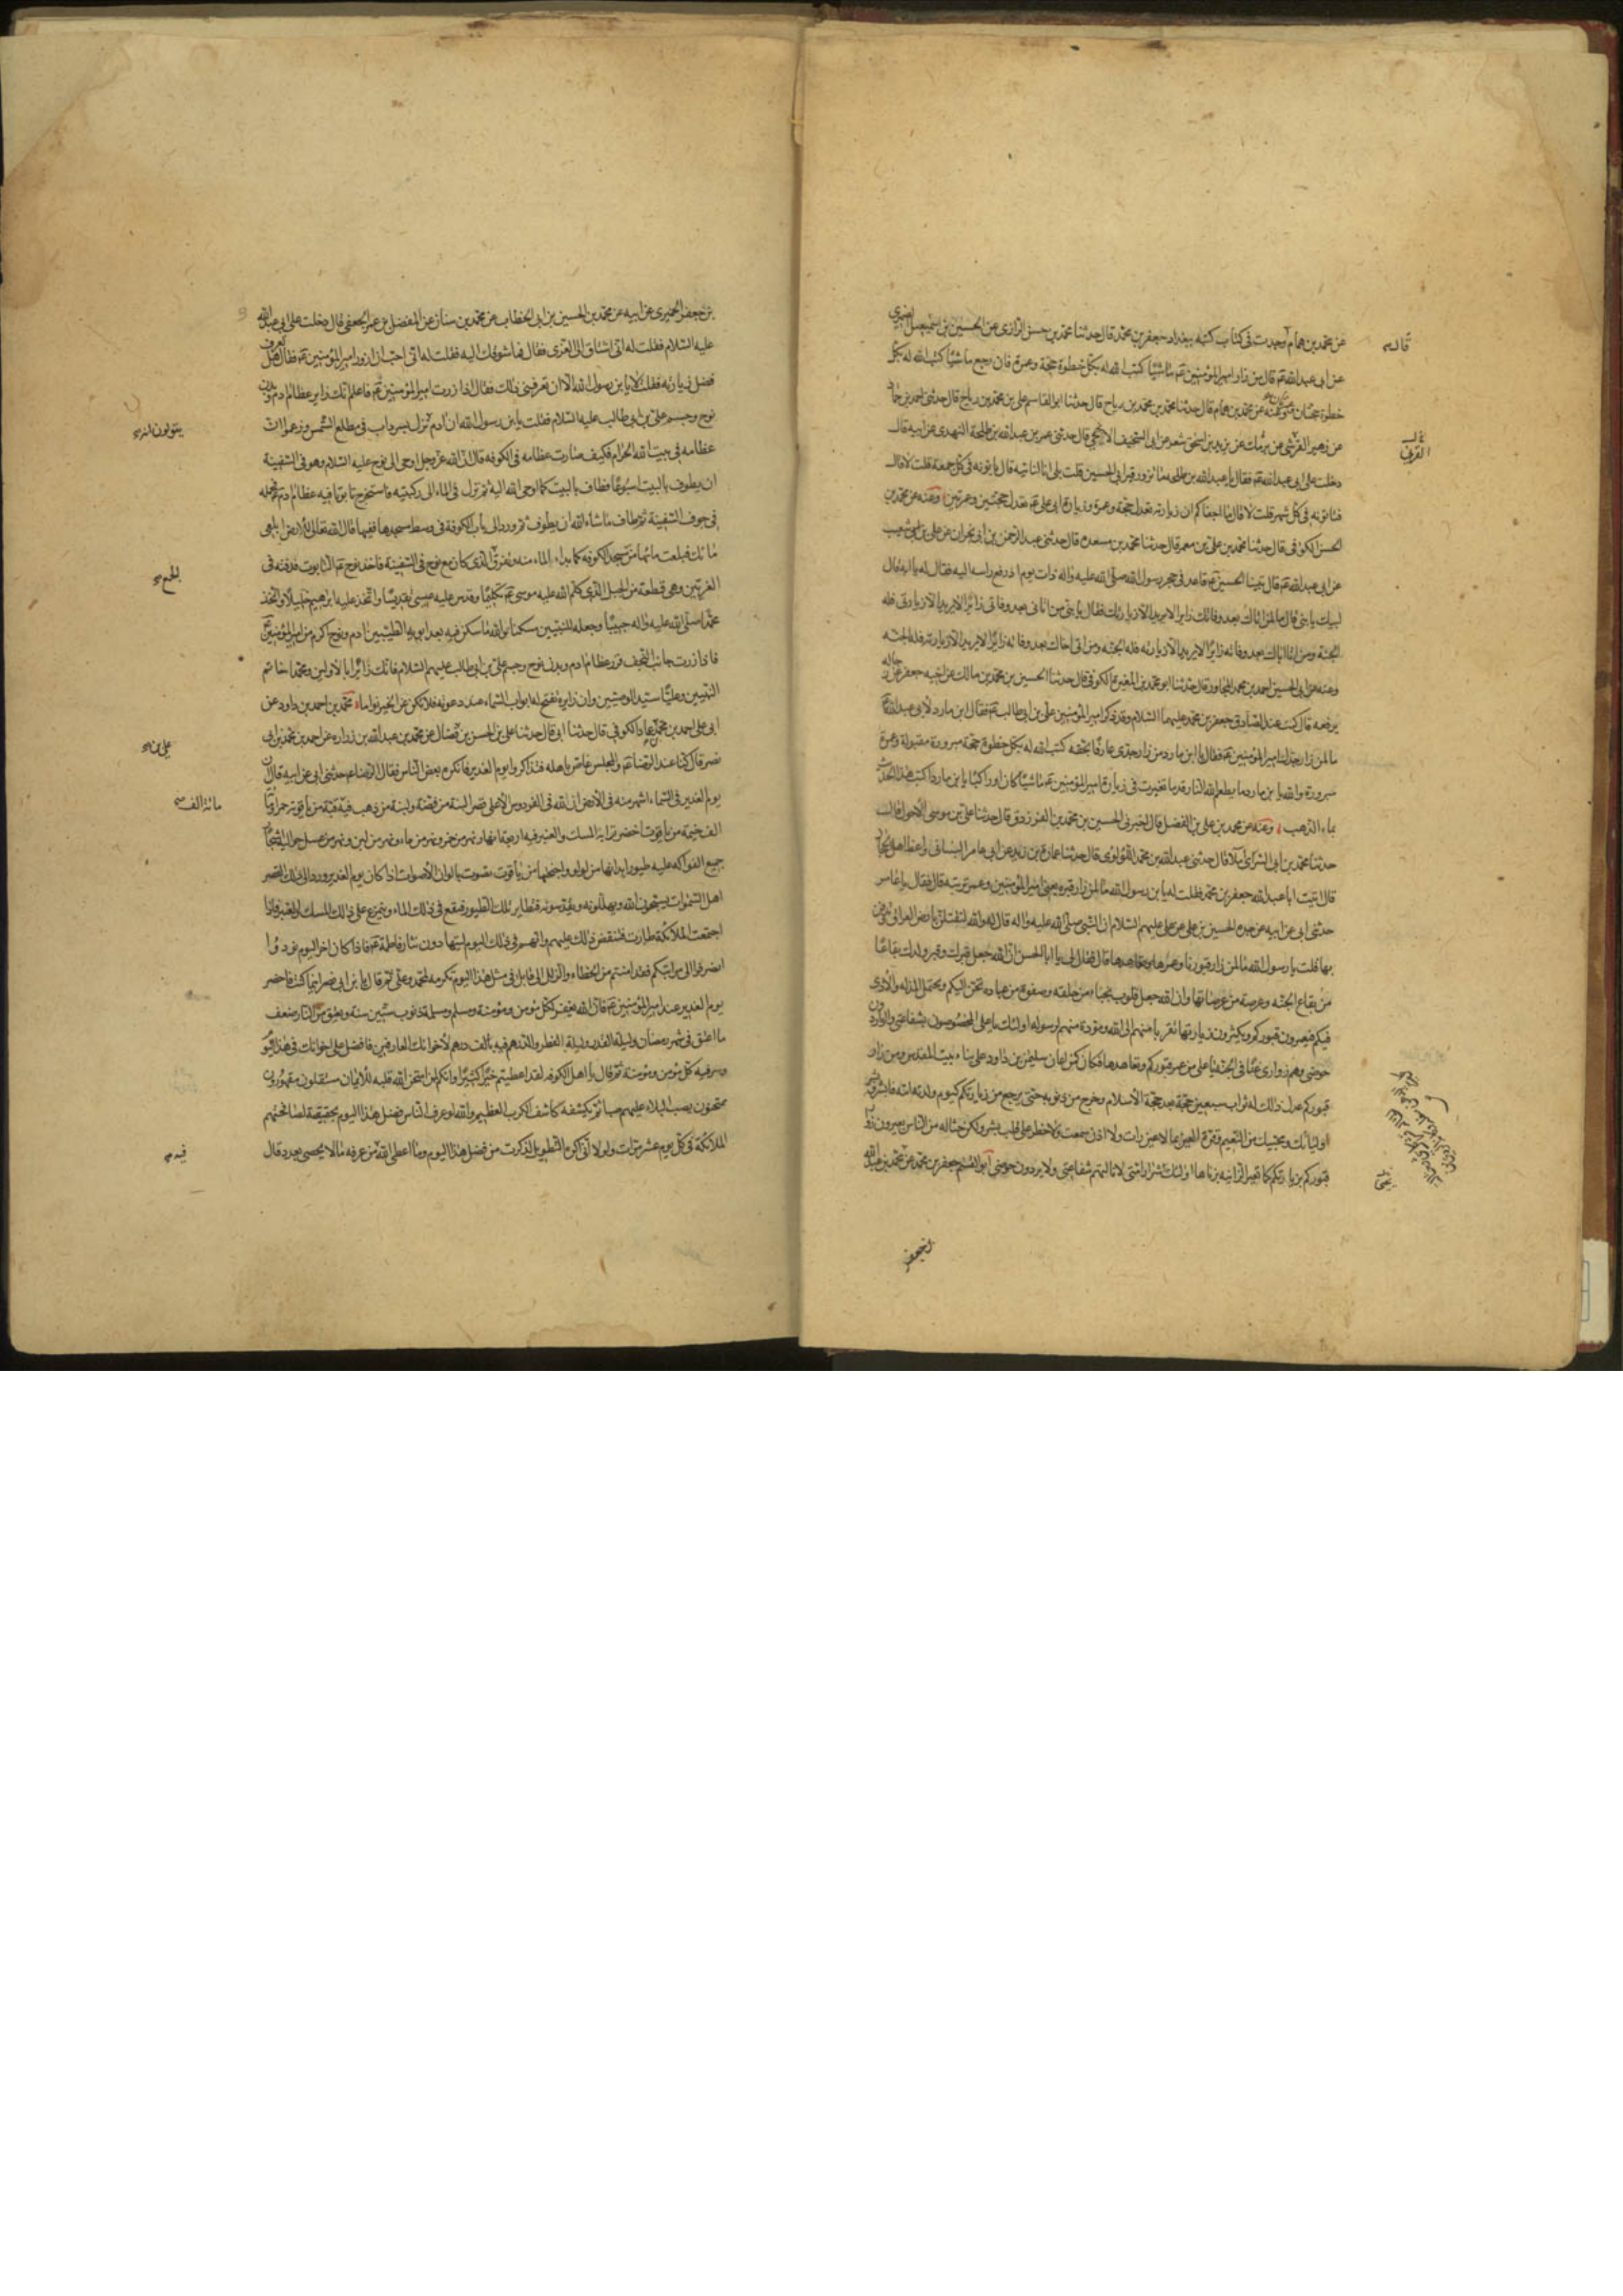 عن محمد بن همام قال وجدت في كتاب كتبه ببغداد جعفر بن محمد قال حدثنا محمد بن حسن الرازي عن الحسين بن اسمعيل الصيمري
عن ابي عبد الله عم قال من زار امير المؤمنين عم ماشيا كتب الله له بكل خطوة حجة وعمرة فان رجع ماشيا كتب الله له بكل
خطوة حجتان وعمرتان وعنه عن محمد بن همام قال حدثنا محمد بن محمد بن رباح قال حدثنا ابو القاسم علي بن محمد بن رباح قال حدثني احمد بن حماد
عن زهير القرشي عن يزيد بن اسحق شعر عن ابي السخيف الارجني قال حدثني عمر بن عبد الله بن طلحة النهدي عن ابيه قال
دخلت على ابي عبد الله عم فقال يا عبد الله بن طلحة ما تزور قبر ابي الحسين قلت بلى انا لناتيه قال تاتونه في كل جمعة قلت لا قال
فتاتونه في كل شهر قلت لا قال ما اجفاكم ان زيارته تعدل حجة وعمرة وزيارة ابي علي عم تعدل حجتين وعمرتين وعنه عن محمد بن
الحسن الكوفي قال حدثنا محمد بن علي بن معمر قال حدثنا محمد بن مسعدة قال حدثني عبد الرحمن بن ابي نجران عن علي بن شعيب
عن ابي عبد الله عم قال بينا الحسين عم قاعد في حجر رسول الله صلى الله عليه واله ذات يوم اذ رفع راسه اليه فقال له يا ابه قال
لبيك يا بني قال ما لمن اتاك بعد وفاتك زايرا لا يريد الا زيارتك فقال يا بني من اتاني بعد وفاتي زائرا لا يريد الا زيارتي فله
الجنة ومن اتى اباك بعد وفاته زايرا لا يريد الا زيارته فله الجنة ومن اتى اخاك بعد وفاته زايرا لا يريد الا زيارته فله الجنة
وعنه عن ابي الحسين احمد بن محمد المجاور قال حدثنا ابو محمد بن المغيرة الكوفي قال حدثنا الحسين بن محمد بن مالك عن اخيه جعفر عن رجاله
يرفعه قال كنت عند الصادق جعفر بن محمد عليهما السلام وقد ذكر امير المؤمنين علي بن ابي طالب عم فقال ابن مارد لابي عبد الله عم
ما لمن زار جدك امير المؤمنين عم فقال يا ابن مارد من زار جدي عارفا بحقه كتب الله له بكل خطوة حجة مبرورة مقبولة وعمرة
مبرورة والله يا بن مارد ما يطعم الله النار قدما تغيرت في زيارة امير المؤمنين عم ماشيا كان او راكبا يا بن مارد اكتب هذا الحديث
بماء الذهب وعنه عن محمد بن علي بن الفضل قال اخبرني الحسين بن محمد بن الفرزدق قال حدثنا علي بن موسى الاحول قال
حدثنا محمد بن ابي السري املاء قال حدثني عبد الله بن محمد البلوي قال حدثنا عمارة بن زيد عن ابي عامر الساني واعظ اهل الحجاز
قال اتيت ابا عبد الله جعفر بن محمد فقلت له يا بن رسول الله ما لمن زار قبره يعني امير المؤمنين وعمر تربته قال فقال يا عامر
حدثني ابي عن ابيه عن جده الحسين بن علي عن علي عليهم السلام ان النبي صلى الله عليه واله قال له والله لتقتلن بارض العراق وتدفن
بها قلت يا رسول الله ما لمن زار قبورنا وعمرها وتعاهدها قال فقال لي يا ابا الحسن ان الله جعل قبرك وقبر ولدك بقاعا
من بقاع الجنة وعرصة من عرصاتها وان الله جعل قلوب نجباء من خلقه وصفوة من عباده تحن اليكم وتحتمل المذلة والاذى
فيكم فيعمرون قبوركم ويكثرون زيارتها تقربا منهم الى الله ومودة منهم لرسوله اولئك يا علي المخصوصون بشفاعتي والواردون
حوضي وهم زواري غدا في الجنة يا علي من عمر قبوركم وتعاهدها فكانما اعان سليمن بن داود على بناء بيت المقدس ومن زار
قبوركم عدل ذلك له ثواب سبعين حجة بعد حجة الاسلام وخرج من ذنوبه حتى يرجع من زيارتكم كيوم ولدته امه فابشر وبشر
اوليائك ومحبيك من النعيم وقرة العين بما لا عين رات ولا اذن سمعت ولا خطر على قلب بشر ولكن حثالة من الناس يعيرون زوار
قبوركم بزيارتكم كما تعير الزانية بزناها اولئك شرار امتي لا نالتهم شفاعتي ولا يردون حوضي ابو القسم جعفر بن محمد عن محمد بن عبد الله
بن جعفر
بن جعفر الحميري عن ابيه عن محمد بن الحسين بن ابي الخطاب عن محمد بن سنان عن المفضل بن عمر الجعفي قال دخلت على ابي عبد الله
عليه السلام فقلت له اني اشتاق الى الغري فقال فما شوقك اليه فقلت له اني احب ان ازور امير المؤمنين عم فقال هل تعرف
فضل زيارته فقلت لا يا بن رسول الله الا ان تعرفني ذلك فقال اذا زرت امير المؤمنين عم فاعلم انك زاير عظام ادم وبدن
نوح وجسم علي بن ابي طالب عليه السلام فقلت يا بن رسول الله ان ادم نزل بسرداب في مطلع الشمس وزعموا ان
عظامه في بيت الله الحرام فكيف صارت عظامه في الكوفه قال ان الله عز وجل اوحى الى نوح عليه السلام وهو في السفينة
ان يطوف بالبيت اسبوعا فطاف بالبيت كما اوحى الله اليه ثم نزل في الماء الى ركبتيه فاستخرج تابوتا فيه عظام ادم عم فحمله
في جوف السفينة ثم طاف ما شاء الله ان يطوف ثم ورد الى باب الكوفة في وسط مسجدها ففيها قال الله تعالى للارض ابلعي
مائك فبلعت مائها من مسجد الكوفه كما بداء الماء منه وتفرق الذي كان مع نوح في السفينة فاخذ نوح عم التابوت فدفنه في
الغري وهي قطعة من الجبل الذي كلم الله عليه موسى عم تكليما وقدس عليه عيسى تقديسا واتخذ عليه ابراهيم خليلا واتخذ
محمدا صلى الله عليه واله حبيبا وجعله للنبيين مسكنا والله ما سكن فيه بعد ابويه الطيبين ادم ونوح اكرم من امير المؤمنين عم
فاذا زرت جانب النجف فزر عظام ادم وبدن نوح وجسم علي بن ابي طالب عليهم السلام فانك زائر الاباء الاولين ومحمدا خاتم
النبيين وعليا سيد الوصيين وان زايره تفتح له ابواب السماء عند دعوته فلا تكن عن الخير نواما محمد بن احمد بن داود عن
ابي علي احمد بن محمد بن عمار الكوفي قال حدثنا ابي قال حدثنا علي بن الحسن بن فضال عن محمد بن عبد الله بن زرارة عن احمد بن محمد بن ابي
نصر قال كنا عند الرضا عم والمجلس غاص باهله فتذاكروا يوم الغدير فانكره بعض الناس فقال الرضا عم حدثني ابي عن ابيه قال ان
يوم الغدير في السماء اشهر منه في الارض ان لله في الفردوس الاعلى قصرا لبنة من فضة ولبنة من ذهب فيه قبة من ياقوتة حمراء
الف خيمة من ياقوت اخضر ترابه المسك والعنبر فيه اربعة انهار نهر من خمر ونهر من ماء ونهر من لبن ونهر من عسل حواليه اشجار
جميع الفواكه عليه طيور ابدانها من لولو واجنحتها من ياقوت تصوت بالوان الاصوات اذا كان يوم الغدير ورد الى ذلك القصر
اهل السموات يسبحون الله ويهللونه ويقدسونه فتطاير تلك الطيور فتقع في ذلك الماء وتتمرغ على ذلك المسك والعنبر فاذا
اجتمعت الملائكة طارت فتنفض ذلك عليهم وانهم في ذلك اليوم ليتهادون نثار فاطمة عم فاذا كان اخر اليوم نودوا
انصرفوا الى مراتبكم فقد امنتم من الخطاء والزلل الى قابل في مثل هذا اليوم تكرمه لمحمد وعلي ثم قال يا بن ابي نصر اينما كنت فاحضر
يوم الغدير عند امير المؤمنين عم فان الله يغفر لكل مؤمن ومؤمنة ومسلم ومسلمة ذنوب ستين سنة ويعتق من النار ضعف
ما اعتق في شهر رمضان وليلة القدر وليلة الفطر والدرهم فيه بالف درهم لاخوانك العارفين فافضل على اخوانك في هذا اليوم
وسر فيه كل مؤمن ومؤمنة ثم قال يا اهل الكوفه لقد اعطيتم خيرا كثيرا وانكم لمن امتحن الله قلبه للايمان مستقلون مقهورون
ممتحنون يصب البلاء عليهم صبا ثم يكشفه كاشف الكرب العظيم والله لو عرف الناس فضل هذا اليوم بحقيقة لصافحتهم
الملائكة في كل يوم عشر مرات ولولا اني اكره التطويل لذكرت من فضل هذا اليوم وما اعطى الله من عرفه ما لا يحصى بعدد قال